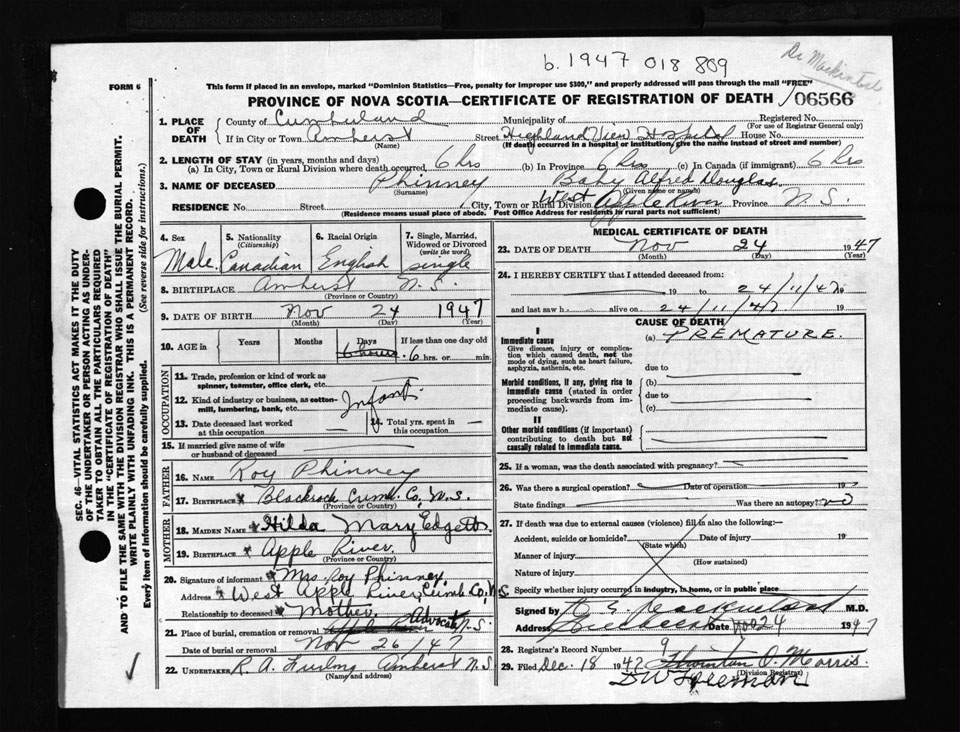 b. 1947 018 809
Dr Mackintosh
FORM 6
This form if placed in an envelope, marked "Dominion Statistics—Free, penalty for improper use $300," and properly addressed will pass through the mail "FREE"
PROVINCE OF NOVA SCOTIA—CERTIFICATE OF REGISTRATION OF DEATH
06566
1. PLACE OF DEATH
County of Cumberland Municipality of Registered No.
(For use of Registrar General only)
If in City or Town Amherst Street Highland View Hospital House No.
(Name) (If death occurred in a hospital or institution, give the name instead of street and number)
2. LENGTH OF STAY (in years, months and days)
(a) In City, Town or Rural Division where death occurred 6 hrs (b) In Province 6 hrs (c) In Canada (if immigrant) 6 hrs
3. NAME OF DECEASED Phinney Baby Alfred Douglas
(Surname) (Given name or names)
RESIDENCE No. Street City, Town or Rural Division West Apple River Province N.S.
(Residence means usual place of abode. Post Office Address for residents in rural parts not sufficient)
4. Sex Male
5. Nationality (Citizenship) Canadian
6. Racial Origin English
7. Single, Married, Widowed or Divorced (write the word) single
8. BIRTHPLACE Amherst N.S.
(Province or Country)
9. DATE OF BIRTH Nov 24 1947
(Month) (Day) (Year)
10. AGE in Years Months Days 6 hours If less than one day old 6 hrs. or min.
OCCUPATION
11. Trade, profession or kind of work as spinner, teamster, office clerk, etc.
12. Kind of industry or business, as cotton-mill, lumbering, bank, etc. Infant
13. Date deceased last worked at this occupation
14. Total yrs. spent in this occupation
15. If married give name of wife or husband of deceased
FATHER
16. Name Roy Phinney
17. Birthplace Blackrock Cumb. Co, N.S.
(Province or Country)
MOTHER
18. Maiden Name Hilda Mary Edgetts
19. Birthplace Apple River
(Province or Country)
20. Signature of informant Mrs. Roy Phinney
Address West Apple River, Cumb. Co, N.S
Relationship to deceased Mother
21. Place of burial, cremation or removal Apple River Advocate N.S.
Date of burial or removal Nov 26/47
22. UNDERTAKER R. A. Furlong Amherst N.S
(Name and address)
MEDICAL CERTIFICATE OF DEATH
23. DATE OF DEATH Nov 24 1947
(Month) (Day) (Year)
24. I HEREBY CERTIFY that I attended deceased from:
19 to 24/11/47 19
and last saw h alive on 24/11/47 19
CAUSE OF DEATH
I
Immediate cause (a) PREMATURE.
Give disease, injury or complication which caused death, not the mode of dying, such as heart failure, asphyxia, asthenia, etc.
due to
Morbid conditions, if any, giving rise to immediate cause (stated in order proceeding backwards from immediate cause).
(b)
due to
(c)
II
Other morbid conditions (if important) contributing to death but not causally related to immediate cause.
25. If a woman, was the death associated with pregnancy?
26. Was there a surgical operation? Date of operation 19
State findings Was there an autopsy? no
27. If death was due to external causes (violence) fill in also the following:—
Accident, suicide or homicide? Date of injury 19
(State which)
Manner of injury
(How sustained)
Nature of injury
Specify whether injury occurred in industry, in home, or in public place
Signed by M.D.
Address Date Nov 24 1947
28. Registrar's Record Number 9
29. Filed Dec. 18 1947 Thornton O. Morris.
(Division Registrar)
D W Freeman
SEC. 46—VITAL STATISTICS ACT MAKES IT THE DUTY
OF THE UNDERTAKER OR PERSON ACTING AS UNDER-
TAKER TO OBTAIN ALL THE PARTICULARS REQUIRED
IN THE "CERTIFICATE OF REGISTRATION OF DEATH"
AND TO FILE THE SAME WITH THE DIVISION REGISTRAR WHO SHALL ISSUE THE BURIAL PERMIT.
WRITE PLAINLY WITH UNFADING INK. THIS IS A PERMANENT RECORD.
Every item of information should be carefully supplied. (See reverse side for instructions.)